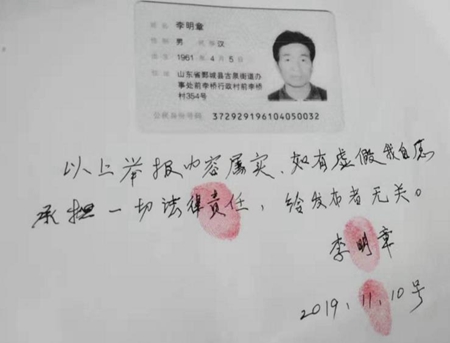 姓名 李明章
性别 男 民族 汉
出生 1961年4月5日
住址 山东省鄄城县古泉街道办
事处前李桥行政村前李桥
村354号
公民身份号码 372929196104050032
以上举报内容属实、如有虚假我自愿
承担一切法律责任，给发布者无关。
李明章
2019、11、10号